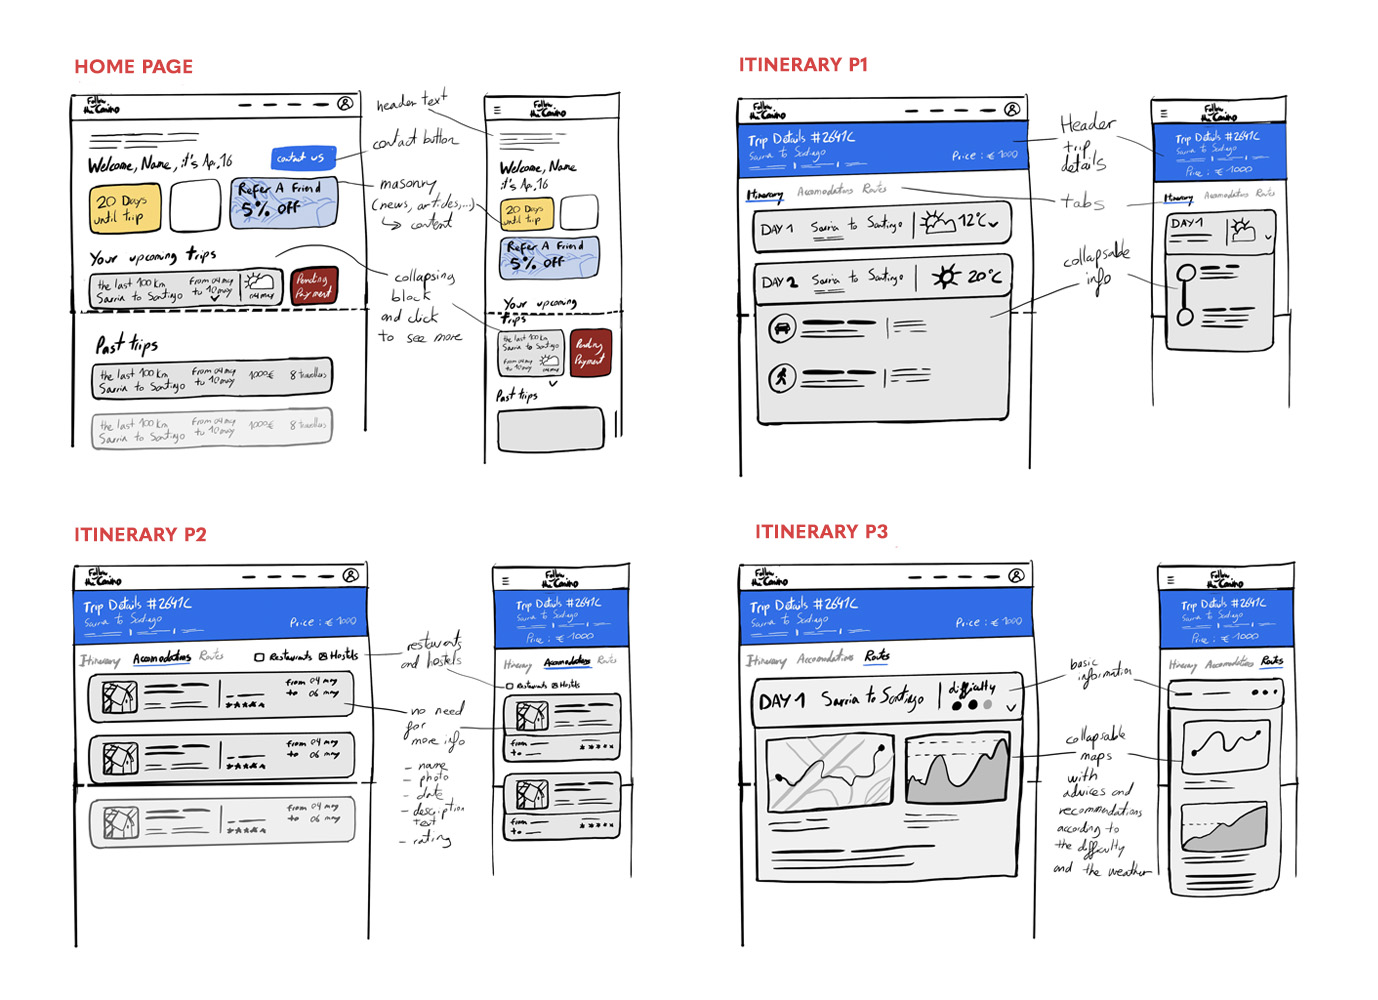 HOME PAGE
Follow
the Camino
Welcome, Name, it's Apr, 16
contact us
20 Days
until trip
Refer A Friend
5% Off
Your upcoming trips
the last 100 km
Sarria to Santiago
From 04 may
to 10 may
04 may
Pending
Payment
Past trips
the last 100 km
Sarria to Santiago
From 04 may
to 10 may
1000€
8 travellers
the last 100 km
Sarria to Santiago
From 04 may
to 10 may
1000€
8 travellers
header text
contact button
masonry
(news, articles,...)
↳ content
collapsing
block
and click
to see more
Follow
the Camino
Welcome, Name
it's Apr, 16
20 Days
until trip
Refer A Friend
5% Off
Your upcoming
trips
the last 100 km
Sarria to Santiago
From 04 may
to 10 may
04 may
Pending
Payment
Past trips
ITINERARY P1
Follow
the Camino
Trip Details #2641C
Sarria to Santiago
Price: €1000
Itinerary Accomodations Routes
DAY 1 Sarria to Santiago 12°C
DAY 2 Sarria to Santiago 20°C
Header
trip
details
tabs
collapsable
info
Follow
the Camino
Trip Details #2641C
Sarria to Santiago
Price: €1000
Itinerary Accomodations Routes
DAY 1
ITINERARY P2
Follow
the Camino
Trip Details #2641C
Sarria to Santiago
Price: €1000
Itinerary Accomodations Routes Restaurants Hostels
from 04 may
to 06 may
from 04 may
to 06 may
from 04 may
to 06 may
restaurants
and hostels
no need
for
more info
- name
- photo
- date
- description
text
- rating
Follow
the Camino
Trip Details #2641C
Sarria to Santiago
Price: €1000
Itinerary Accomodations Routes
Restaurants Hostels
from
to
from
to
ITINERARY P3
Follow
the Camino
Trip Details #2641C
Sarria to Santiago
Price: €1000
Itinerary Accomodations Routes
DAY 1 Sarria to Santiago difficulty
basic
information
collapsable
maps
with
advices and
recommendations
according to
the difficulty
and the weather
Follow
the Camino
Trip Details #2641C
Sarria to Santiago
Price: €1000
Itinerary Accomodations Routes